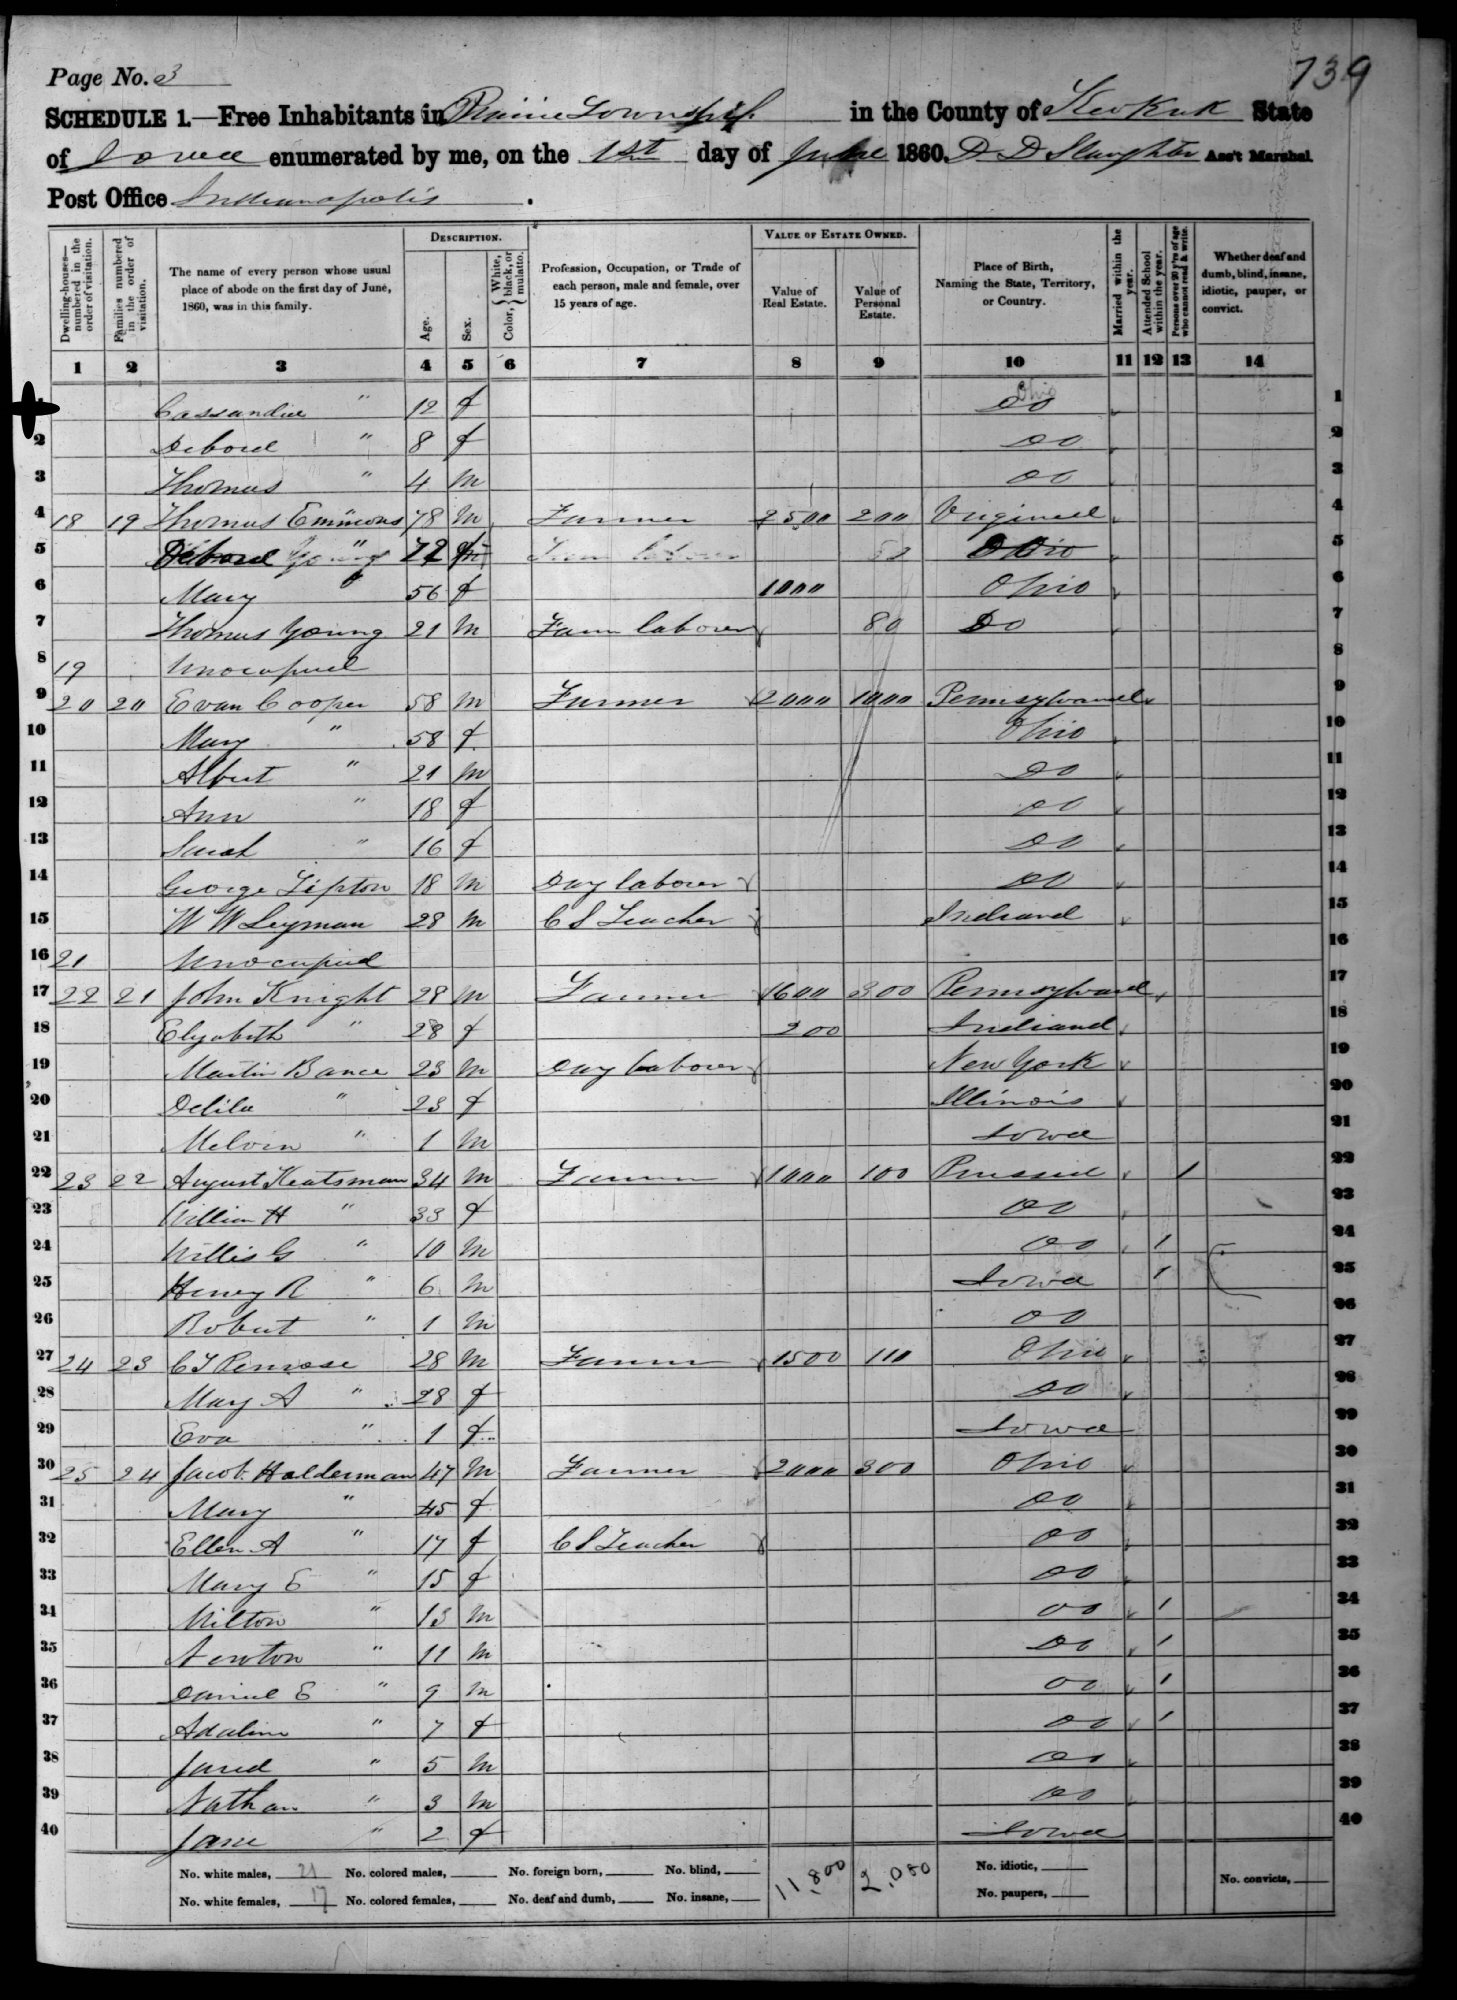 739
Page No. 3
SCHEDULE 1.—Free Inhabitants in Prairie Township in the County of Keokuk State
of Iowa enumerated by me, on the 1st day of June 1860. D D Slaughter Ass't Marshal.
Post Office Indianapolis.
DESCRIPTION. VALUE OF ESTATE OWNED.
Dwelling-houses—numbered in the order of visitation.
Families numbered in the order of visitation.
The name of every person whose usual place of abode on the first day of June, 1860, was in this family.
Age.
Sex.
Color, { White, black, or mulatto.
Profession, Occupation, or Trade of each person, male and female, over 15 years of age.
Value of Real Estate.
Value of Personal Estate.
Place of Birth, Naming the State, Territory, or Country.
Married within the year.
Attended School within the year.
Persons over 20 y'rs of age who cannot read & write.
Whether deaf and dumb, blind, insane, idiotic, pauper, or convict.
1 2 3 4 5 6 7 8 9 10 11 12 13 14
Cassandra " 12 f Ohio Do 1
2 " 8 f Do 2
3 Thomas " 4 m Do 3
4 18 19 Thomas Emmons 78 m Farmer 2500 200 Virginia 4
5 " 72 f Ohio 5
6 Mary 56 f 1000 Ohio 6
7 Thomas Young 21 m Farm laborer 80 Do 7
8 19 Unocupied 8
9 20 20 Evan Cooper 58 m Farmer 2000 1000 Pennsylvania 9
10 Mary " 58 f Ohio 10
11 Albert " 21 m Do 11
12 Ann " 18 f Do 12
13 Sarah " 16 f Do 13
14 George Lipton 18 m Day laborer Do 14
15 W W Leyman 28 m C S Teacher Indiana 15
16 21 Unocupied 16
17 22 21 John Knight 28 m Farmer 1600 300 Pennsylvania 17
18 Elizabeth " 28 f 200 Indiana 18
19 Martin Bance 23 m Day laborer New York 19
20 Delila " 23 f Illinois 20
21 Melvin " 1 m Iowa 21
22 23 22 August Keatsman 34 m Farmer 1000 100 Prussia 1 22
23 William H " 33 f Do 23
24 Willis G " 10 m Do 1 24
25 Henry R " 6 m Iowa 1 25
26 Robert " 1 m Do 26
27 24 23 C T Penrose 28 m Farmer 1500 110 Ohio 27
28 Mary A " 28 f Do 28
29 Eva " 1 f Iowa 29
30 25 24 Jacob Halderman 47 m Farmer 2000 300 Ohio 30
31 Mary " 45 f Do 31
32 Ellen A " 17 f C S Teacher Do 32
33 Mary E " 15 f Do 33
34 Milton " 13 m Do 1 34
35 Newton " 11 m Do 1 35
36 Daniel E " 9 m Do 1 36
37 Adaline " 7 f Do 1 37
38 Jared " 5 m Do 38
39 Nathan " 3 m Do 39
40 Jane " 2 f Iowa 40
No. white males, 21 No. colored males, No. foreign born, No. blind, 11,800 2,080 No. idiotic,
No. white females, 17 No. colored females, No. deaf and dumb, No. insane, No. paupers, No. convicts,